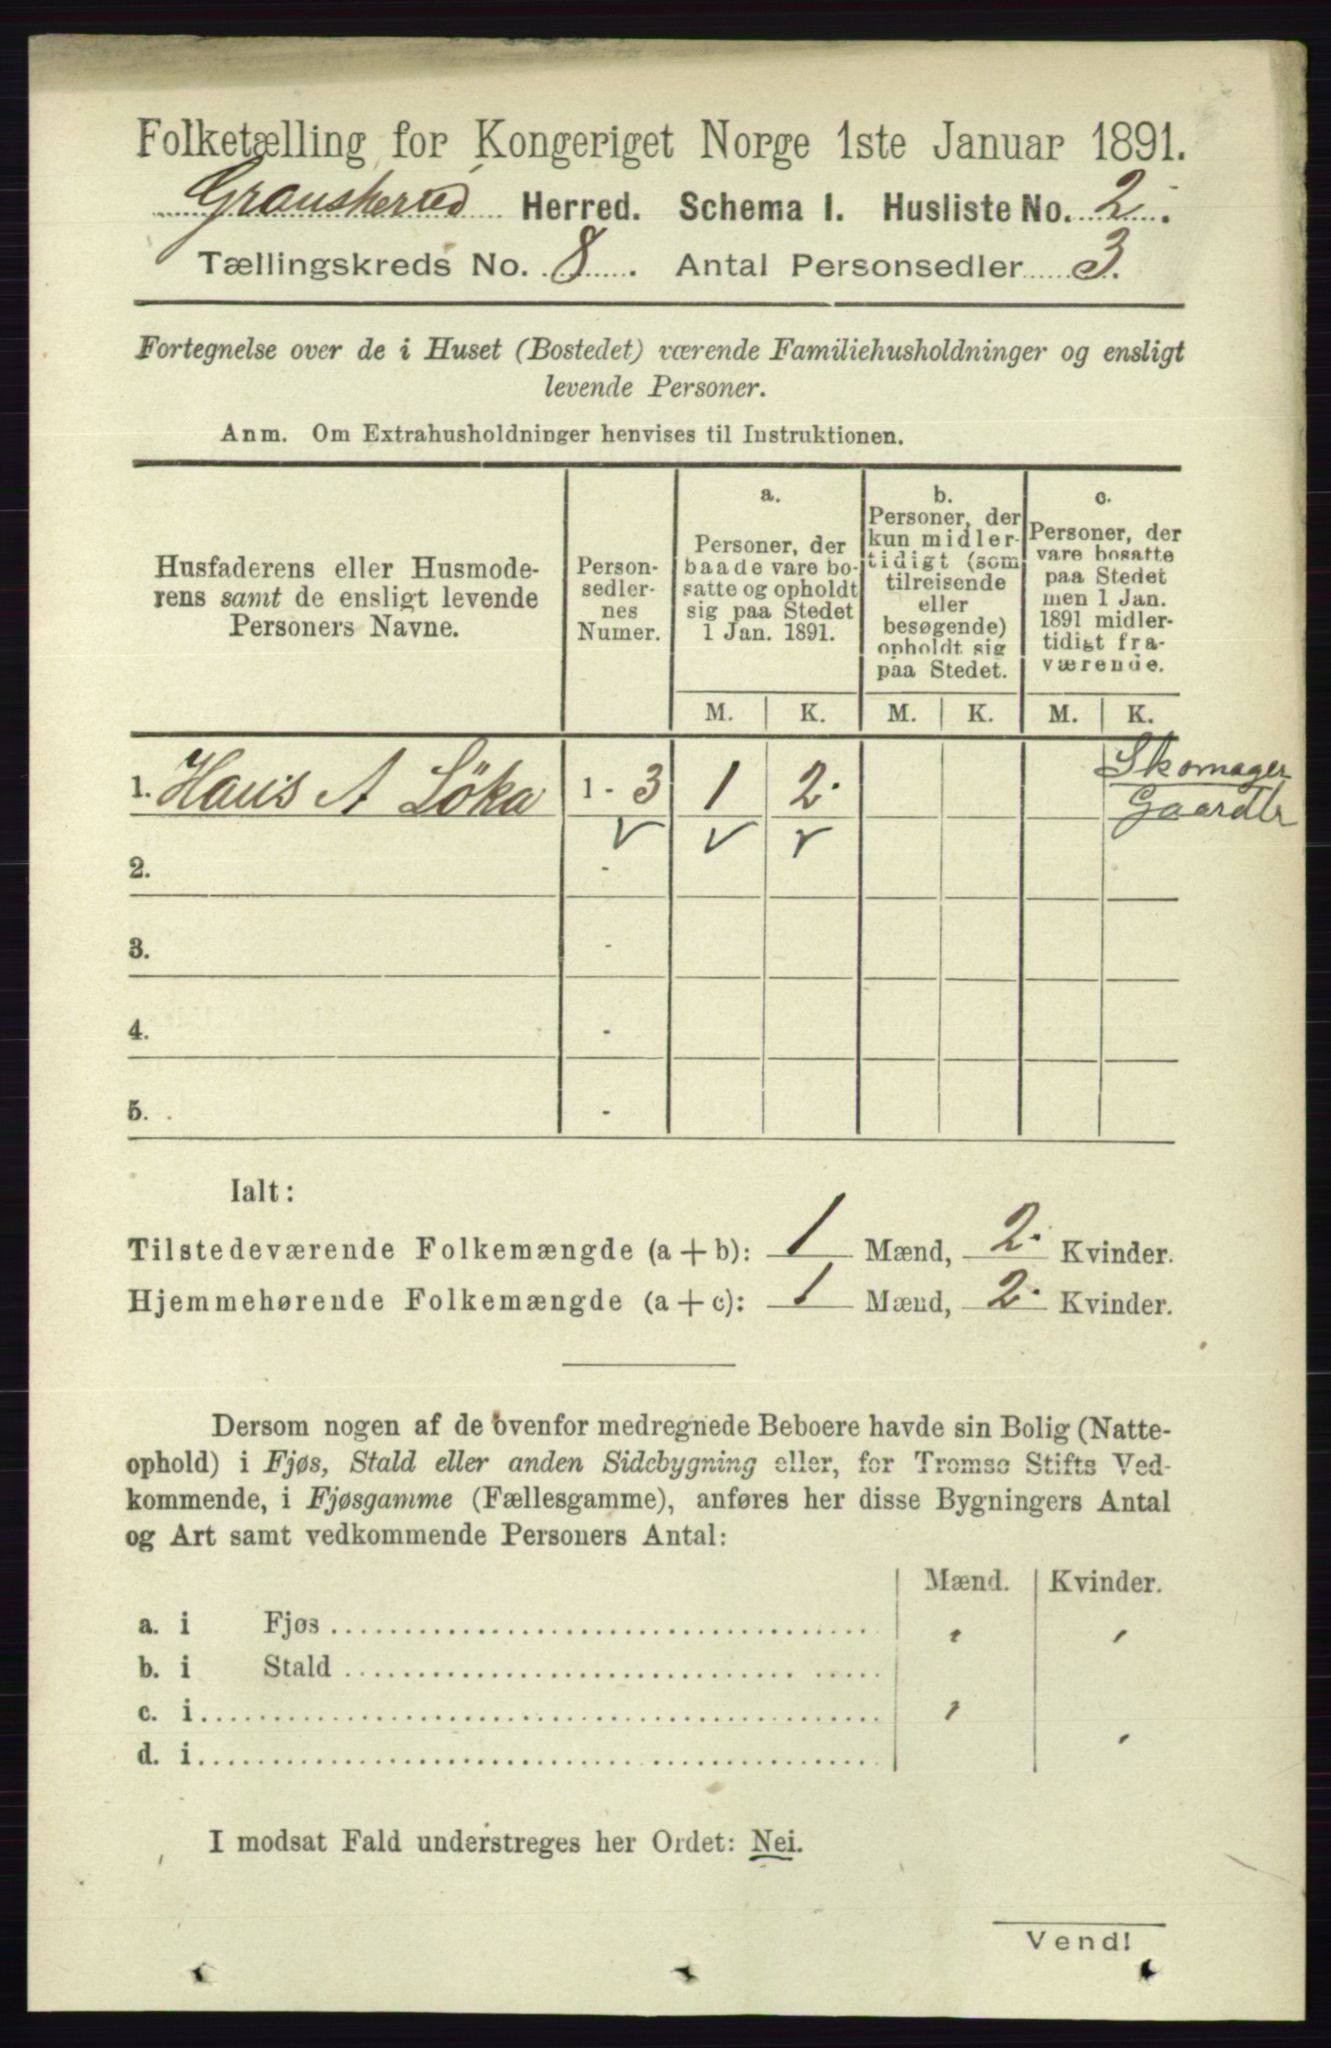 Folketælling for Kongeriget Norge 1ste Januar 1891.
Gransherred Herred. Schema I. Husliste No. 2.
Tællingskreds No. 8. Antal Personsedler 3.
Fortegnelse over de i Huset (Bostedet) værende Familiehusholdninger og ensligt
levende Personer.
Anm. Om Extrahusholdninger henvises til Instruktionen.
Husfaderens eller Husmode-
rens samt de ensligt levende
Personers Navne.
Person-
sedler-
nes
Numer.
a.
Personer, der
baade vare bo-
satte og opholdt
sig paa Stedet
1 Jan. 1891.
b.
Personer, der
kun midler-
tidigt (som
tilreisende
eller
besøgende)
opholdt sig
paa Stedet.
c.
Personer, der
vare bosatte
paa Stedet
men 1 Jan.
1891 midler-
tidigt fra-
værende.
M. K. M. K. M. K.
1. Hans A Löka 1 - 3 1 2. Skomager
Gaardbr
2. -
3. -
4. -
5. -
Ialt:
Tilstedeværende Folkemængde (a + b): 1 Mænd, 2. Kvinder.
Hjemmehørende Folkemængde (a + c): 1 Mænd, 2. Kvinder.
Dersom nogen af de ovenfor medregnede Beboere havde sin Bolig (Natte-
ophold) i Fjøs, Stald eller anden Sidebygning eller, for Tromsø Stifts Ved-
kommende, i Fjøsgamme (Fællesgamme), anføres her disse Bygningers Antal
og Art samt vedkommende Personers Antal:
Mænd. Kvinder.
a. i Fjøs
b. i Stald
c. i
d. i
I modsat Fald understreges her Ordet: Nei.
Vend!